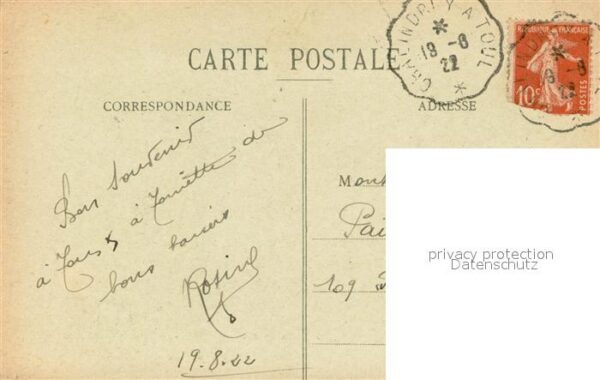 CHALINDREY A TOUL
19-8
22
CARTE POSTALE
CORRESPONDANCE
ADRESSE
REPUBLIQUE FRANÇAISE
10c
POSTES
Bon souvenir
à tous à de
bons baisers
19.8.22
109
privacy protection
Datenschutz